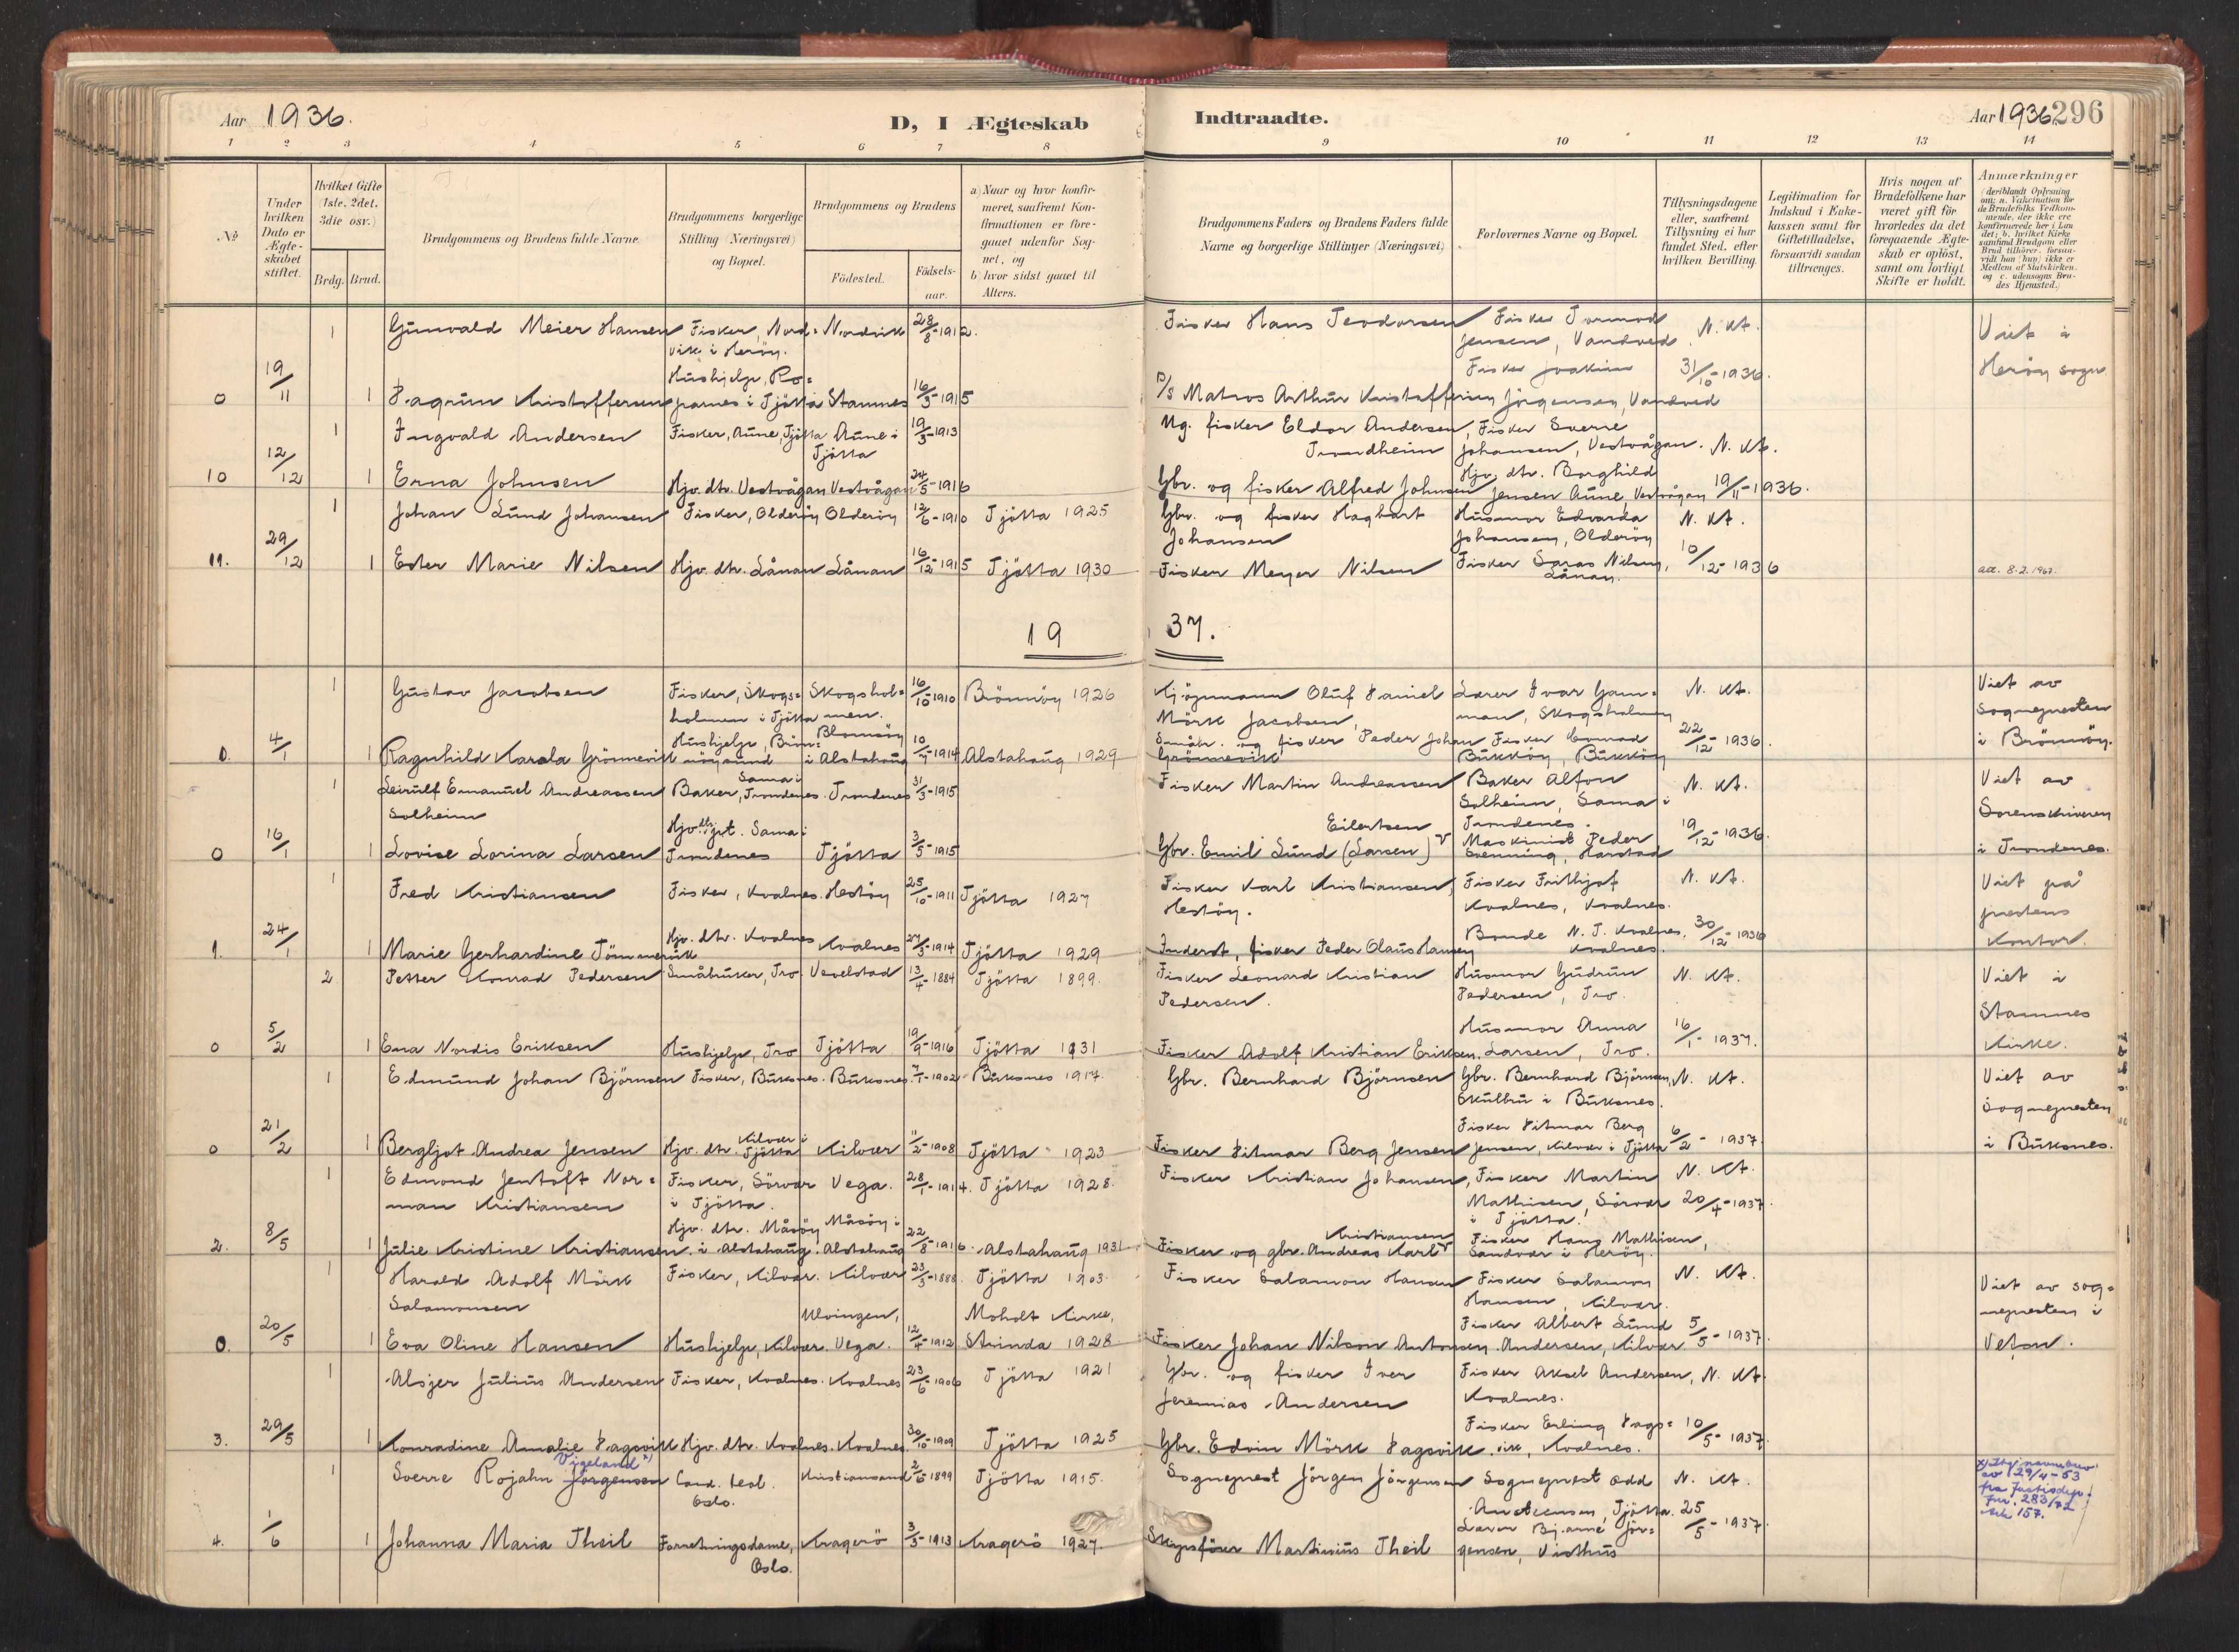 Aar 1936.
D, I Ægteskab
Indtraadte.
Aar 1936 296
1 2 3 4 5 6 7 8
9 10 11 12 13 14
No
Under hvilken Dato er Ægteskabet stiftet.
Hvilket Gifte (1ste, 2det, 3die osv.)
Brdg. Brud.
Brudgommens og Brudens fulde Navne
Brudgommens borgerlige Stilling (Næringsvei) og Bopæl.
Brudgommens og Brudens
Fødested. Fødsels-aar.
a) Naar og hvor konfirmeret, saafremt Konfirmationen er foregaaet udenfor Sognet, og
b) hvor sidst gaaet til Alters.
Brudgommens Faders og Brudens Faders fulde Navne og borgerlige Stillinger (Næringsvei)
Forlovernes Navne og Bopæl.
Tillysningsdagene eller, saafremt Tillysning ei har fundet Sted, efter hvilken Bevilling
Legitimation for Indskud i Enkekassen samt for Giftetilladelse, forsaavidt saadan tiltrænges.
Hvis nogen af Brudefolkene har været gift før hvorledes da det foregaaende Ægteskab er opløst, samt om lovligt Skifte er holdt.
Anmærkninger (deriblandt Oplysning om: a. Vakcination for de Brudefolks Vedkommende, der ikke ere konfirmerede her i Landet; b. hvilket Kirkesamfund Brudgom eller Brud tilhører, forsaavidt han (hun) ikke er Medlem af Statskirken. og c. udensogns Brudes Hjemsted.)
1 Gunvald Meier Hansen Fisker, Nord= vik i Herøy. Nordvik 28/8-1912. Fisker Hans Teodorsen Fisker Tormod Jensen, Vandved. N. kt. Viet i
0 19/11 1 Dagrun Kristoffersen Hushjelp, Ro= parnes i Tjøtta Stamnes 16/3-1915 P/s Matros Arthur Kristoffersen Fisker Joakim Jørgensen, Vandved 31/10-1936. Herøy sogn
1 Ingvald Andersen Fisker, Aune, Tjøtta Aune i Tjøtta 19/3-1913 Ug. fisker Eldor Andersen, Trondheim Fisker Sverre Johansen, Vestvågan. N. kt.
10 12/12 1 Erna Johnsen Hjv. dtr. Vestvågan Vestvågan 24/5-1916 Gbr. og fisker Alfred Johnsen Hjv. dtr. Borghild Jensen Aune, Vestvågan 19/11-1936.
1 Johan Lund Johansen Fisker, Olderöy Olderöy 12/6-1910 Tjøtta 1925 Gbr. og fisker Hagbart Johansen Husmor Edvarda Johansen, Olderöy N. kt.
11. 29/12 1 Ester Marie Nilsen Hjv. dtr. Lånan Lånan 16/12-1915 Tjøtta 1930 Fisker Meyer Nilsen Fisker Saras Nilsen, Lånan. 10/12-1936 att. 8.2.1967.
19 37.
1 Gustav Jacobsen Fisker, Skogs= holmen i Tjøtta Skogshol= men. 16/10-1910 Brönnöy 1926 Kjöpmann Oluf Daniel Mörk Jacobsen, Lærer Ivar Gam= man, Skogsholmen N. kt. Viet av sognepresten
0. 4/1 1 Ragnhild Karala Grönnevik Hushjelp, Brön= nöysund Blomsöy i Alstahaug 10/7-1914 Alstahaug 1929 Småbr. og fisker Peder Johan Grönnevik Fisker Conrad Bukköy, Bukköy 22/12-1936. i Brönnöy.
1 Leirulf Emanuel Andreassen Solheim Baker, Trondenes. Sama i Trondenes 31/3-1915 Fisker Martin Andreassen Baker Alfon Solheim, Sama i Trondenes. N. kt. Viet av Sorenskriveren
0 16/1 1 Lovise Lorina Larsen Hjv. dtr. Sama i Trondenes Tjøtta 3/5-1915 Gbr. Emil Lund (Larsen) Eilertsen Maskinist Peder Svenning, Harstad 19/12-1936. i Trondenes.
1 Fred Kristiansen Fisker, Kvalnes. Hestöy 25/10-1911 Tjøtta 1927 Fisker Karl Kristiansen, Hestöy. Fisker Frithjof Kvalnes, Kvalnes. N. kt. Viet på prestens
1. 24/1 1 Marie Gerhardine Tömmervik Hjv. dtr. Kvalnes Kvalnes 27/3-1914 Tjøtta 1929 Inderst, fisker Peder Olaus Hansen Bonde N. J. Kvalnes, Kvalnes. 30/12-1936 kontor.
2 Petter Konrad Pedersen Småbruker, Tro Vevelstad 13/4-1884 Tjøtta 1899. Fisker Leonard Kristian Pedersen. Husmor Gudrun Pedersen, Tro. N. kt. Viet i Stamnes
0 5/2 1 Ena Nordis Eriksen Hushjelp, Tro Tjøtta 19/9-1916 Tjøtta 1931 Fisker Adolf Kristian Eriksen. Husmor Anna Larsen, Tro. 16/1-1937. Kirke.
1 Edmund Johan Björnsen Fisker, Buksnes. Buksnes. 7/1-1902 Buksnes 1917. Gbr. Bernhard Björnsen Gbr. Bernhard Björnsen, Skulbru i Buksnes. N. kt. Viet av sognepresten
0 21/2 1 Bergljot Andrea Jensen Hjv. dtr. Kilvær i Tjøtta Kilvær 11/2-1908 Tjøtta 1923 Fisker Hitmar Berg Jensen Fisker Hitmar Berg Jensen, Kilvær i Tjøtta 6/2-1937. i Buksnes.
1 Edmond Jentoft Nor= man Kristiansen Fisker, Sörvær i Tjøtta. Vega. 28/1-1914. Tjøtta 1928. Fisker Kristian Johansen, Fisker Martin Mathisen, Sörvær i Tjøtta. N. kt. 20/4-1937.
2. 8/5 1 Julie Kristine Kristiansen. Hjv. dtr. Måsöy i Alstahaug. Måsöy i Alstahaug 22/8-1916. Alstahaug 1931 Fisker og gbr. Andreas Karl Kristiansen Fisker Hans Mathisen, Sandvær i Heröy.
1 Harald Adolf Mörk Salamonsen Fisker, Kilvær. Kilvær 23/3-1888. Tjøtta 1903. Fisker Salamon Hansen Fisker Salamon Hansen, Kilvær. N. kt. Viet av sog= nepresten i
0. 20/5 1 Eva Oline Hansen Hushjelp, Kilvær. Ulvingen, Vega. 12/4-1912 Moholt Kirke, Strinda 1928 Fisker Johan Nilson Antonsen. Fisker Albert Lund Andersen, Kilvær. 5/5-1937.
1 Alsjer Julius Andersen Fisker, Kvalnes. Kvalnes 23/6-1906 Tjøtta 1921 Gbr. og fisker Iver Jeremias Andersen Fisker Aksel Andersen, Kvalnes. N. kt.
3. 29/5 1 Konradine Amalie Dagsvik Hjv. dtr. Kvalnes. Kvalnes. 30/10-1909 Tjøtta 1925 Gbr. Edvin Mörk Dagsvik. Fisker Erling Dags= vik, Kvalnes. 10/5-1937.
1 Sverre Rojahn Jörgensen Vigeland x) Cand. teol. Oslo. Kristiansand 2/6-1899 Tjøtta 1915. Sogneprest Jörgen Jörgensen Sogneprest Odd Andersen, Tjøtta. N. kt. x) Iflg. navnebrev av 29/4-53 fra Justisdep. Jnr. 283/72 Ark 157.
4. 1/6 1 Johanna Maria Theil Forretningsdame, Oslo. Kragerö 3/3-1913 Kragerö 1927 Skipsförer Martinius Theil Lærer Bjarne Jör= gensen, Visthus 25/5-1937